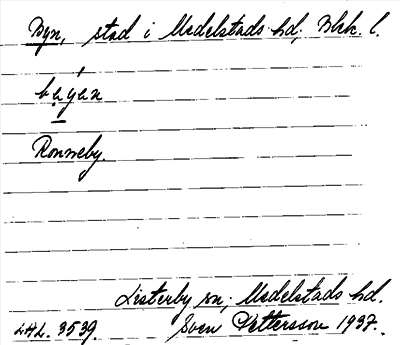 Byn, stad i Medelstads hd, Blek. l.
Ronneby.
Listerby sn, Medelstads hd.
LHL. 3539. Sven Pettersson 1937.